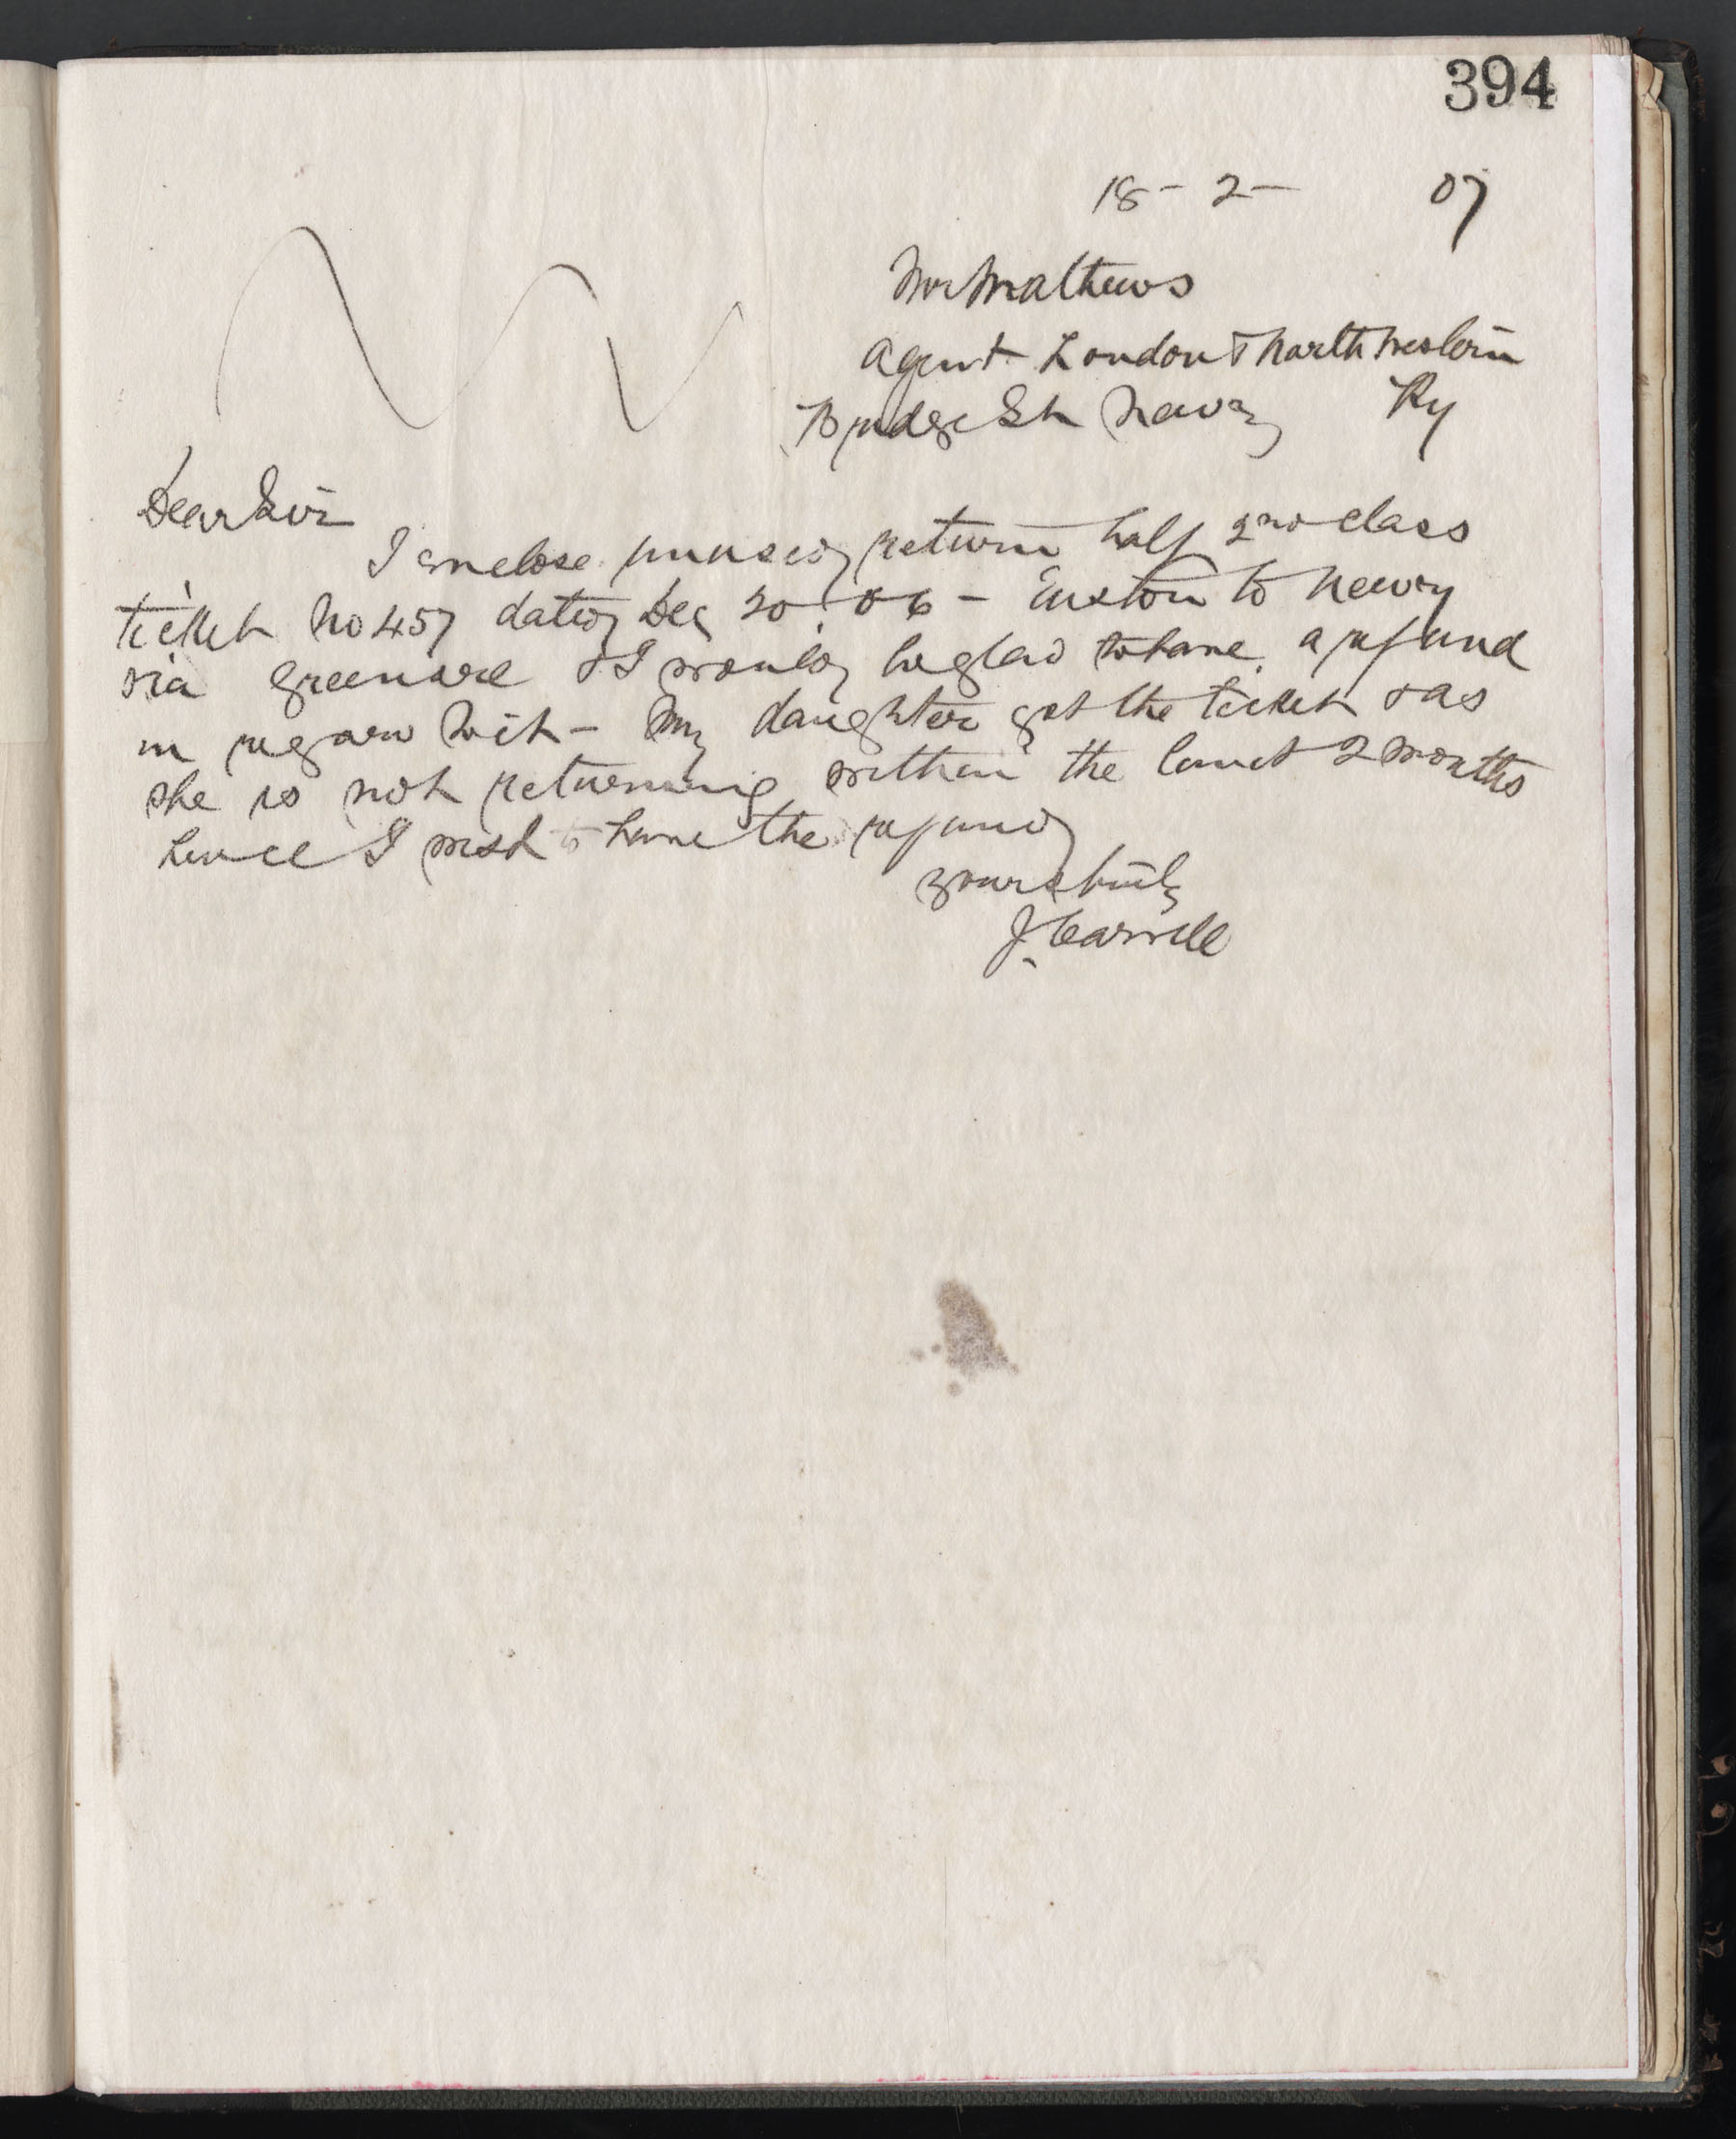 394
18 - 2 - 07
Mr Mathews
Agent London & North Western
Bridge St Newry Ry
Dear Sir
I enclose unused return half 2nd class
ticket No 457 dated Dec 20. 06 - Euston to Newry
via Greenore & I would be glad to have a refund
in regard to it - My daughter got the ticket & as
she is not returning within the limit 2 months
hence I wish to have the refund
Yours truly
J. Carroll